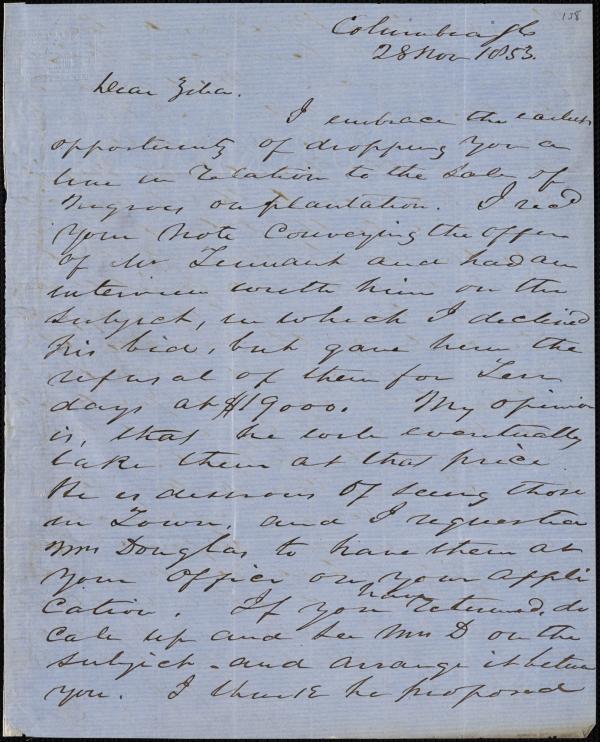 158
Columbia
28 Nov 1853.
Dear Ziba.
I embrace the earliest
opportunity of dropping you a
line in relation to the Sale of
Negroes on plantation. I recd
your note Conveying the offer
of Mr Tennant and had an
interview with him on the
subject, in which I declined
his bid, but gave him the
refusal of them for Ten
days at $19000. My opinion
is, that he will eventually
take them at that price
He is desirous of seeing those
in Town, and I requested
Mrs Douglas to have them at
your office on your appli
cation. If you have returned, do
call up and see Mrs D on the
subject - and arrange it between
you. I think he proposed